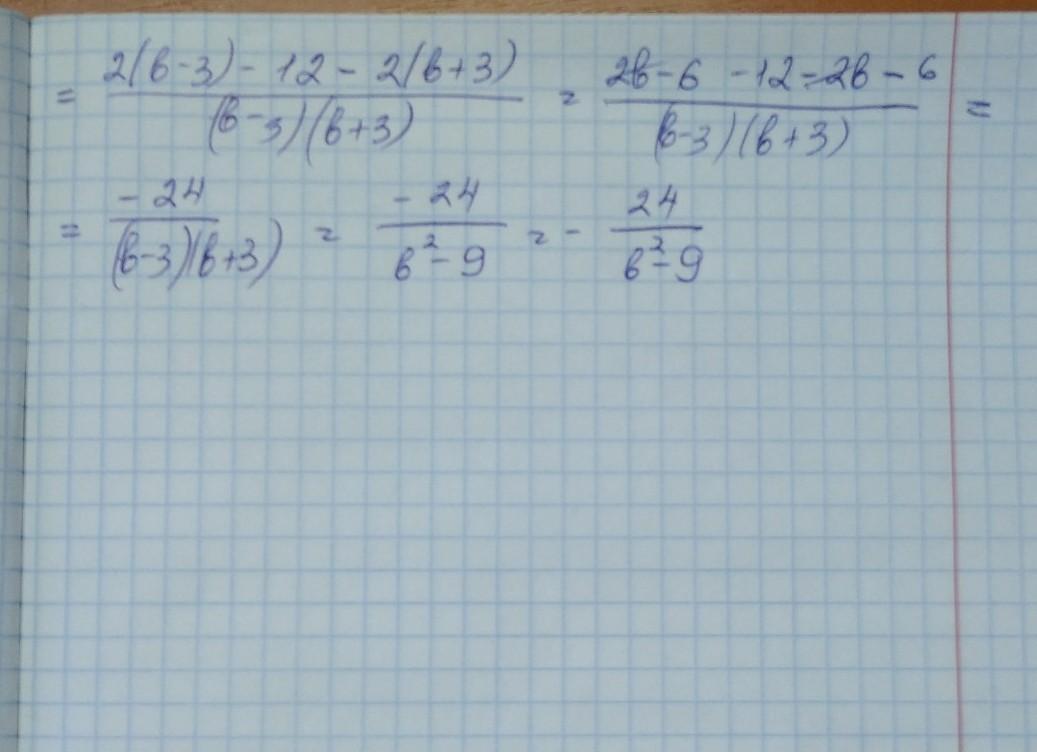 = 2(b-3) - 12 - 2(b+3) / (b-3)(b+3) = 2b-6 -12-2b-6 / (b-3)(b+3) =
= -24 / (b-3)(b+3) = -24 / b²-9 = - 24 / b²-9